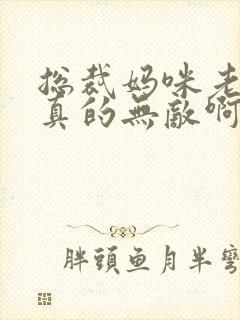 总裁妈咪老
真的無敵啊
胖頭鱼月半彎